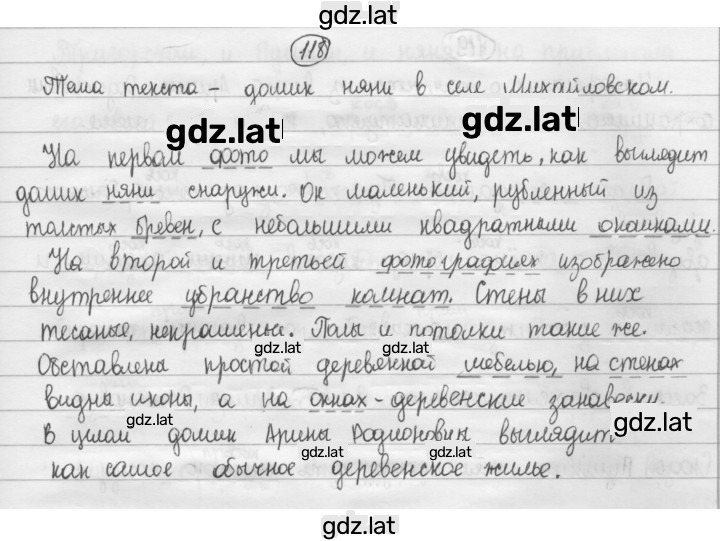 gdz.lat
118
Тема текста – домик няни в селе Михайловском.
gdz.lat gdz.lat
На первом фото мы можем увидеть, как выглядит
домик няни снаружи. Он маленький, рубленный из
толстых бревен, с небольшими квадратными окошками.
На второй и третьей фотографиях изображено
внутреннее убранство комнат. Стены в них
тесаные, некрашенные. Полы и потолки такие же.
gdz.lat gdz.lat
Обставлены простой деревенной мебелью, на стенах
видны иконы, а на окнах – деревенские занавески.
gdz.lat gdz.lat
В целом домик Арины Родионовны выглядит
как самое обычное деревенское жилье.
gdz.lat gdz.lat
gdz.lat